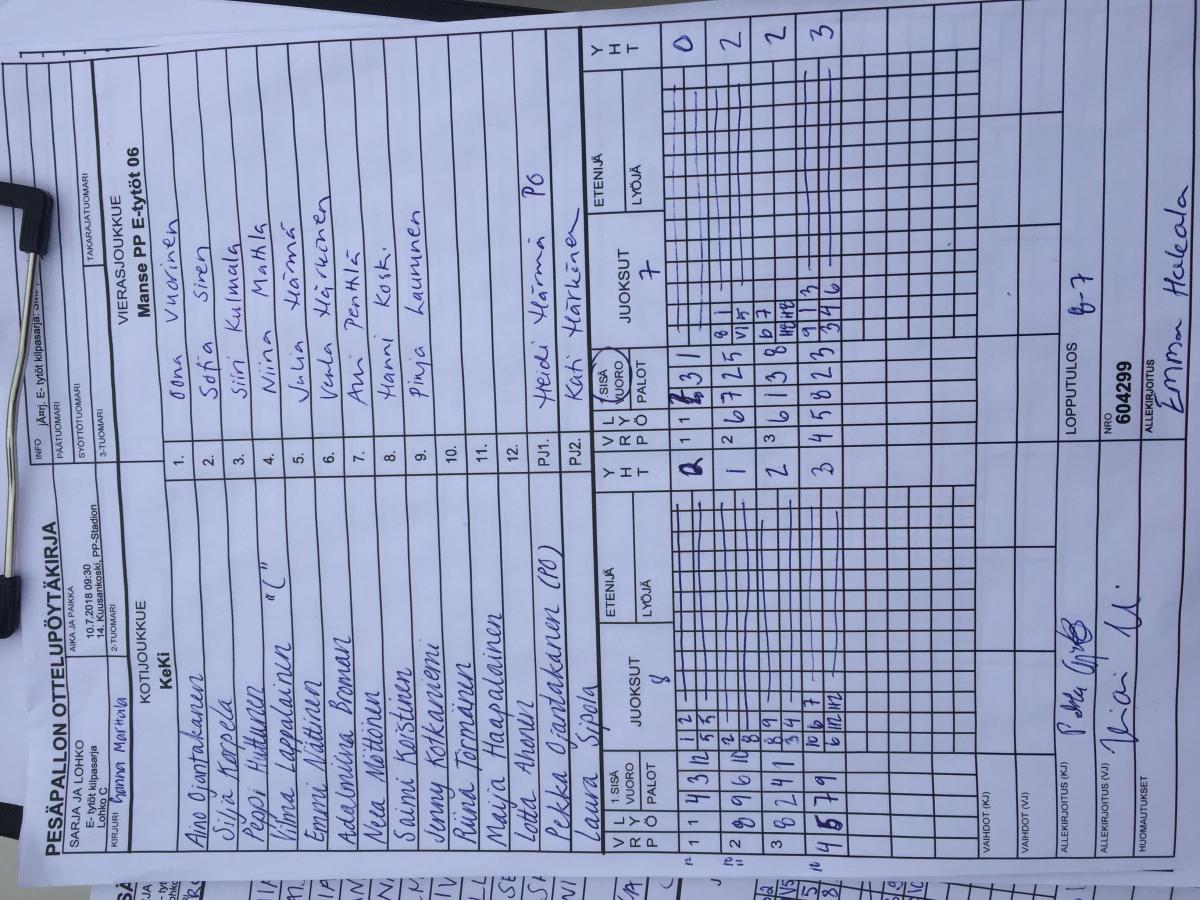 PESÄPALLON OTTELUPÖYTÄKIRJA
SARJA JA LOHKO
E- tytöt kilpasarja
Lohko C
AIKA JA PAIKKA
10.7.2018 09:30
14. Kuusankoski, PP-Stadion
INFO
E- tytöt kilpasarja
PÄÄTUOMARI
SYÖTTÖTUOMARI
KIRJURI
2-TUOMARI
3-TUOMARI
TAKARAJATUOMARI
KOTIJOUKKUE
KeKi
VIERASJOUKKUE
Manse PP E-tytöt 06
Aino Ojantakanen 1. Oona Vuorinen
Silja Korpela 2. Sofia Siren
Peppi Huttunen 3. Siiri Kulmala
Vilma Lappalainen "(" 4. Niina Mattila
Emmi Nättinen 5. Julia Härmä
Adalmiina Boman 6. Venla Härkönen
Nea Möttönen 7. Anni Penttilä
Saimi Koistinen 8. Hanni Koski
Jenny Kotkaniemi 9. Pinja Laurinen
Riina Törmänen 10.
Maija Haapalainen 11.
Lotta Ahonen 12.
Pekka Ojantakanen (PO) PJ1. Heidi Härmä PO
Laura Sipola PJ2. Kati Härkönen
V R P L Y Ö 1.SISÄ VUORO PALOT JUOKSUT 8 ETENIJÄ LYÖJÄ Y H T
V R P L Y Ö 1.SISÄ VUORO PALOT JUOKSUT 7 ETENIJÄ LYÖJÄ Y H T
1 1 4 3 12 1 2 5 5 2 1 1 3 1 0
2 8 9 6 10 2 8 1 2 6 7 2 5 8 1 2
3 8 2 4 1 8 9 3 4 2 3 6 1 3 8 6 7 2
4 5 7 9 10 6 7 6 3 4 5 8 2 3 9 1 3 3 4 6 3
VAIHDOT (KJ)
VAIHDOT (VJ)
ALLEKIRJOITUS (KJ)
LOPPUTULOS 8-7
ALLEKIRJOITUS (VJ)
NRO
604299
HUOMAUTUKSET
ALLEKIRJOITUS
Emma Hakala